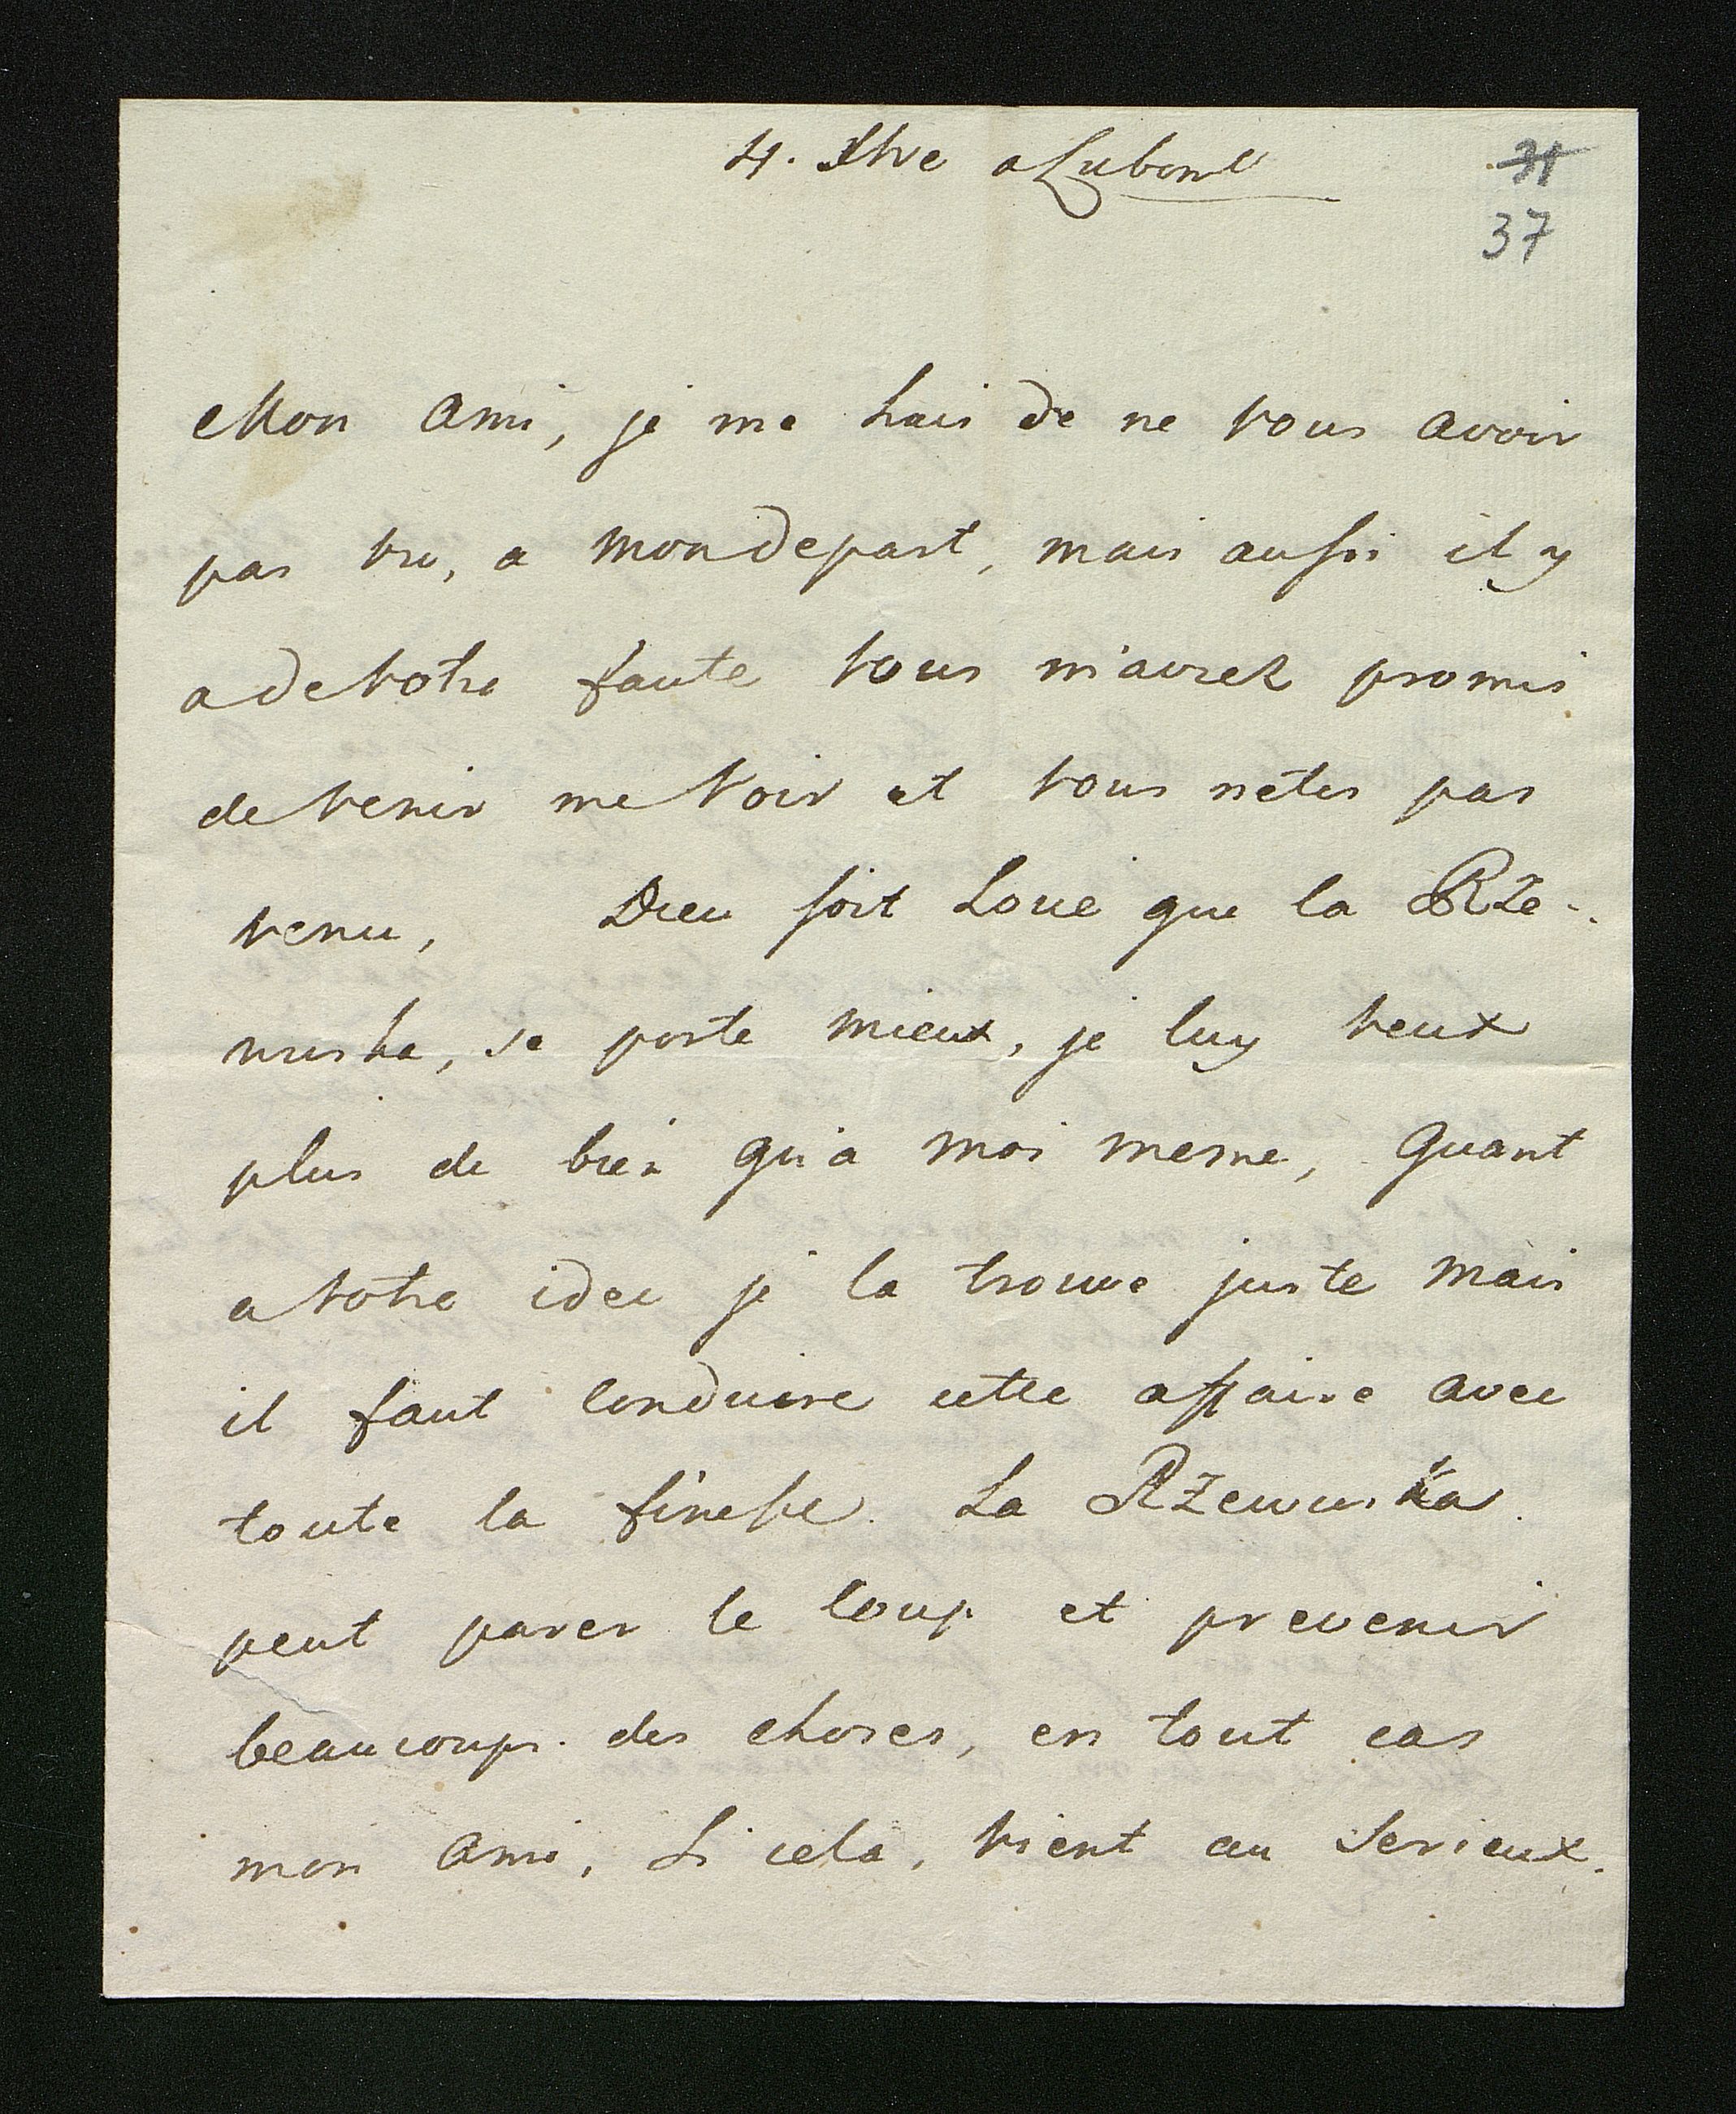 4. Xbre a Luboml
31
37
Mon Ami, je me hais de ne vous avoir
pas vu, a mon depart, mais aussi il y
a de votre faute vous m'aviez promis
de venir me voir et vous n'etes pas
venu, Dieu soit Loué que la Rże-
wuska, se porte mieux, je luy veux
plus de bien qu'a moi meme, Quant
a votre idee je la trouve juste mais
il faut conduire cette affaire avec
toute la finesse. La Rżewuska
peut parer le coup et prevenir
beaucoup des choses, en tout cas
mon Ami, Si cela, vient au Serieux.